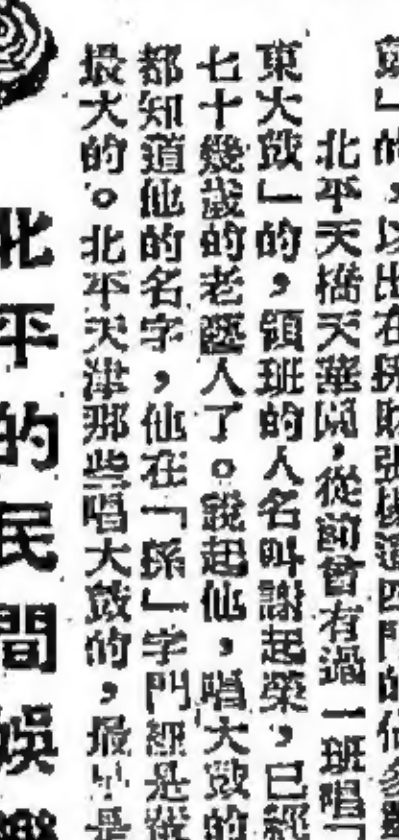 鼓」的，以出在孫財張楊這四門的
北平天橋天華園，從前曾有過一班唱「
東大鼓」的，領班的人名叫謝起榮，已經
七十幾歲的老藝人了。說起他，唱大鼓的
都知道他的名字，他在「孫」字門裡是輩
最大的。北平天津那些唱大鼓的，最早是
北平的民間娛樂